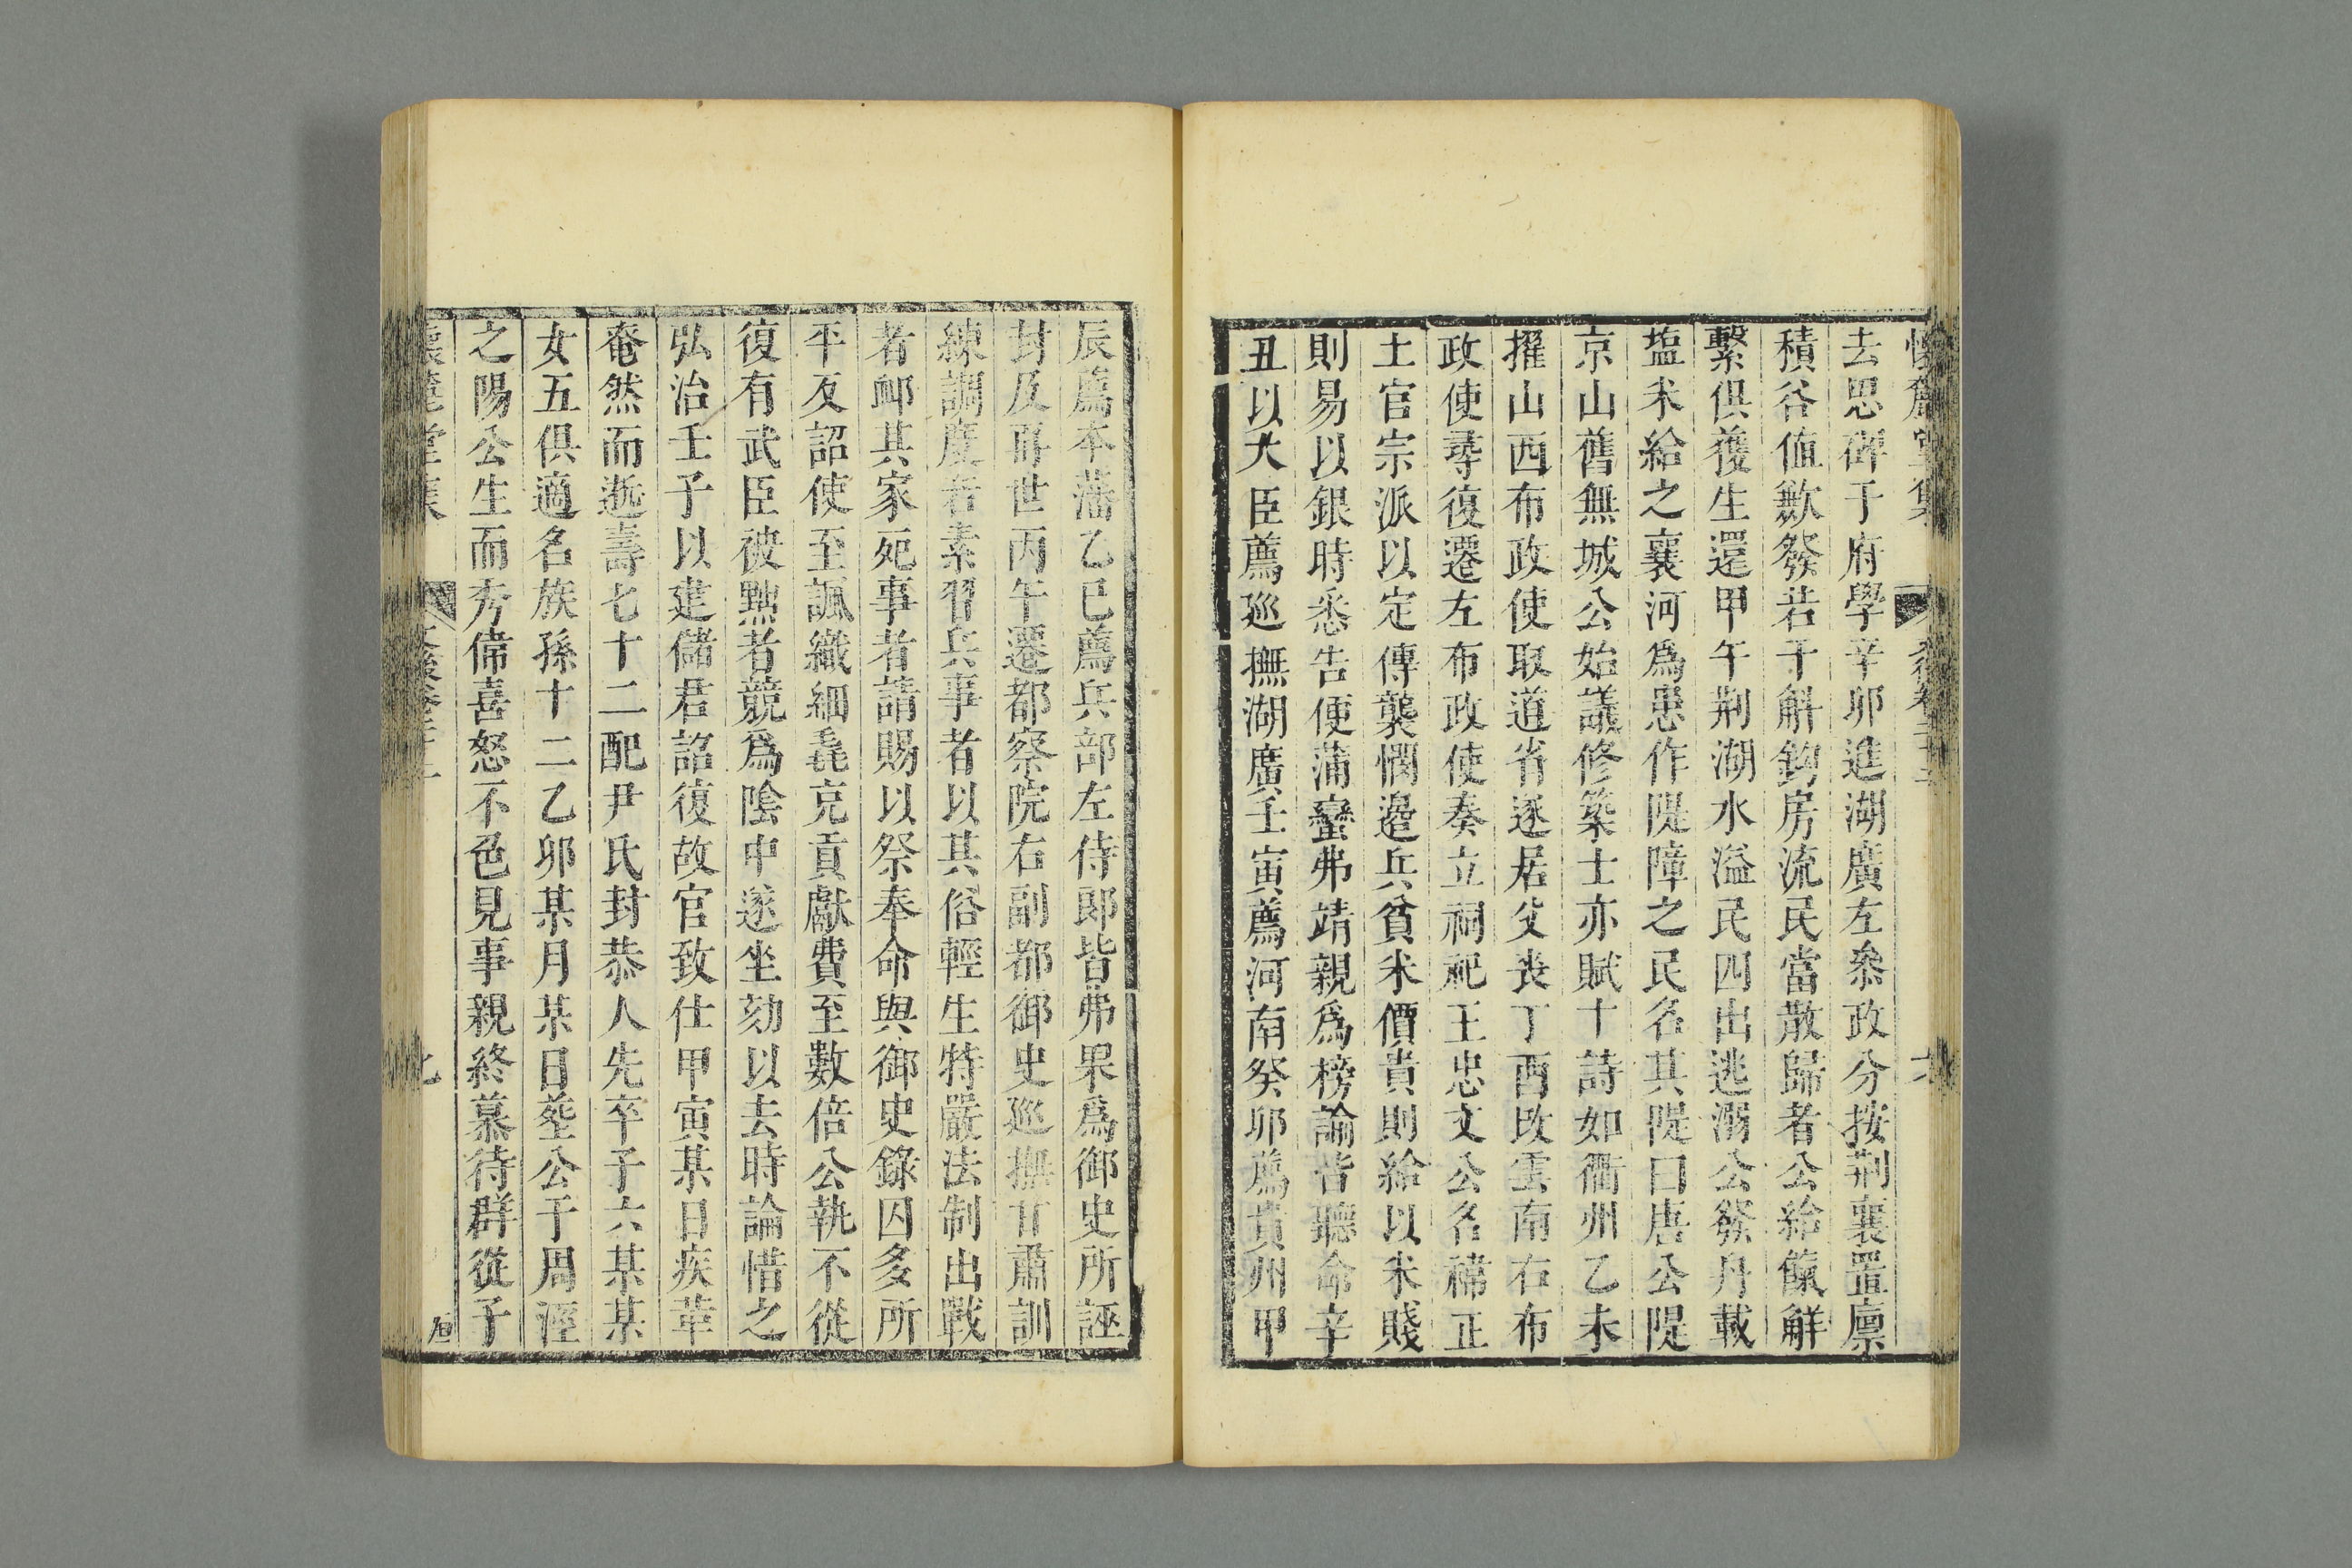 去思碑于府學辛卯進湖廣左叅政分按荆襄置廪
積谷值歉發若干斛鈎房流民當散歸者公給餼觧
繫俱獲生還甲午荆湖水溢民四出逃溺公發丹載
塩米給之襄河爲患作隄障之民名其隄曰唐公隄
京山舊無城公始議修築士亦賦十詩如衢州乙未
擢山西布政使取道省逐居父丧丁酉改雲南右布
政使尋復遷左布政使奏立祠祀王忠文公名禕正
土官宗派以定傳襲憫邉兵貧米價貴則給以米賤
則易以銀時悉告便蒲蠻弗靖親爲榜諭皆聽命辛
丑以大臣薦廵撫湖廣壬寅薦河南癸卯薦貴州甲
辰薦本藩乙巳薦兵部左侍郎皆弗果爲御史所誣
封及再世丙午遷都察院右副都御史廵撫甘肅訓
練調度若素習兵事者以其俗輕生特嚴法制出戰
者衈其家死事者請賜以祭奉命與御史錄囚多所
平反詔使至諷織細毳克貢獻費至數倍公執不從
復有武臣被黜者競爲陰中遂坐劾以去時論惜之
弘治壬子以建儲君詔復故官致仕甲寅某日疾革
奄然而逝壽七十二配尹氏封恭人先卒子六某某
女五俱適名族孫十二乙卯某月某日塟公于周涇
之陽公生而秀偉喜怒不色見事親終慕待群從子